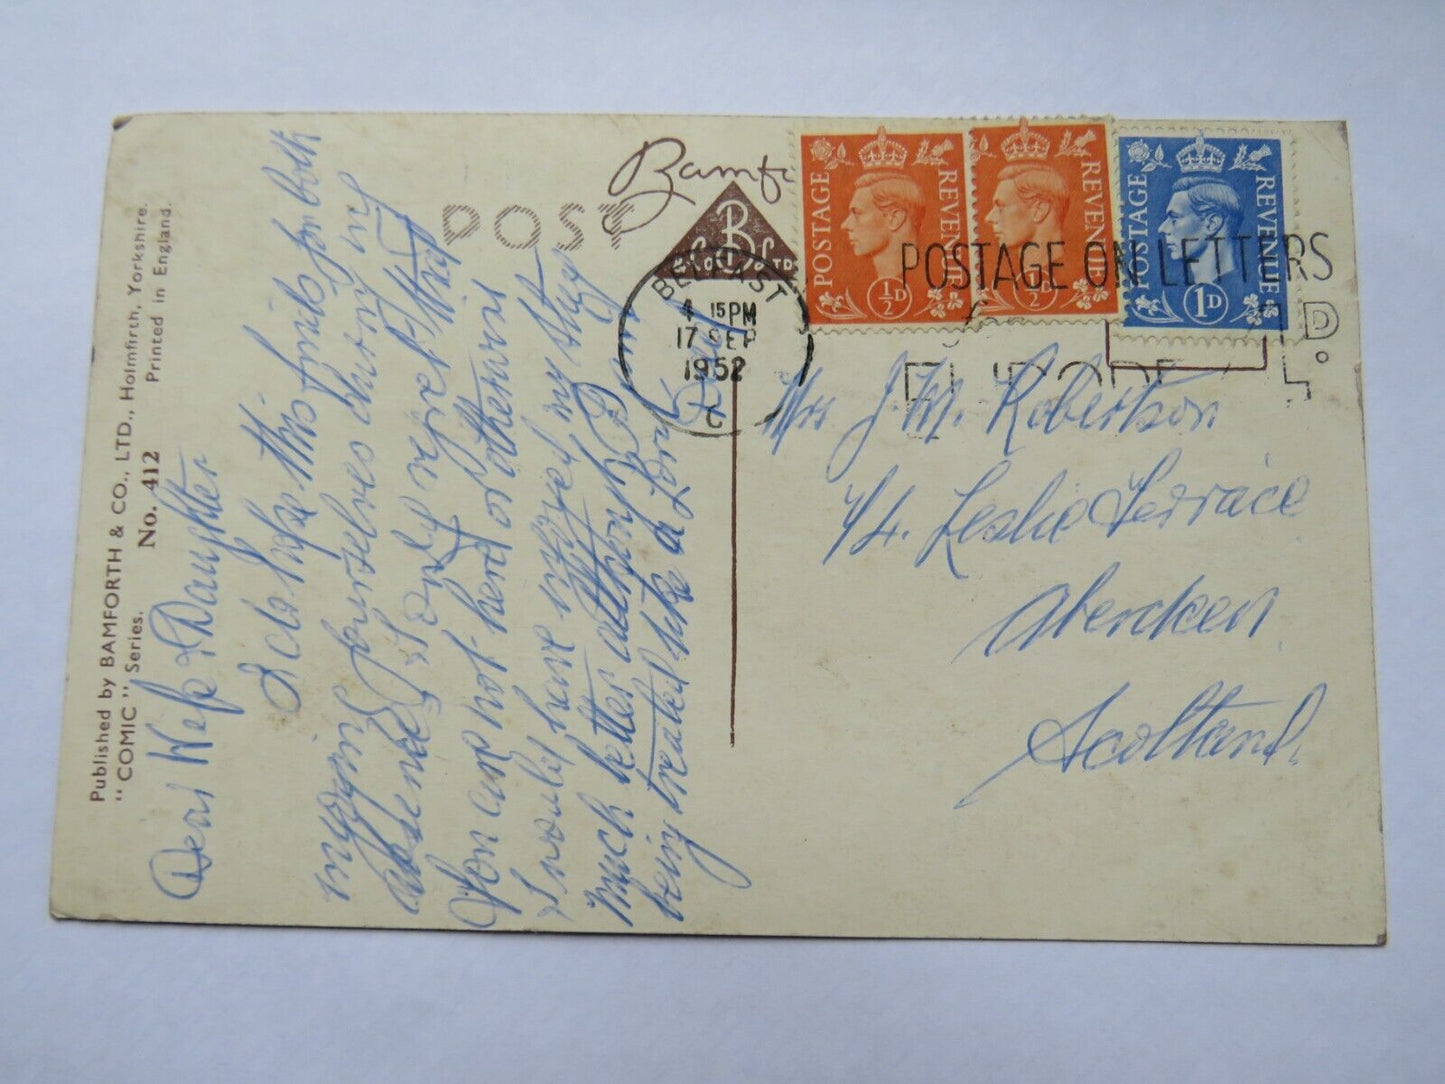 Published by BAMFORTH & CO., LTD., Holmfirth, Yorkshire.
"COMIC" Series. No. 412 Printed in England.
POST
Bamf
B
LTD
BELFAST
4 15PM
17 SEP
1952
C
POSTAGE REVENUE
½D
POSTAGE REVENUE
½D
POSTAGE REVENUE
1D
POSTAGE ON LETTERS
Dear Wife & Daughter
I do hope this finds you both
enjoying yourselves during my
absence, & only regret that
you are not here otherwise
I would have enjoyed my stay
much better although I am
being treated like a Lord
Mrs J. M. Robertson
14. Leslie Terrace
Aberdeen
Scotland.